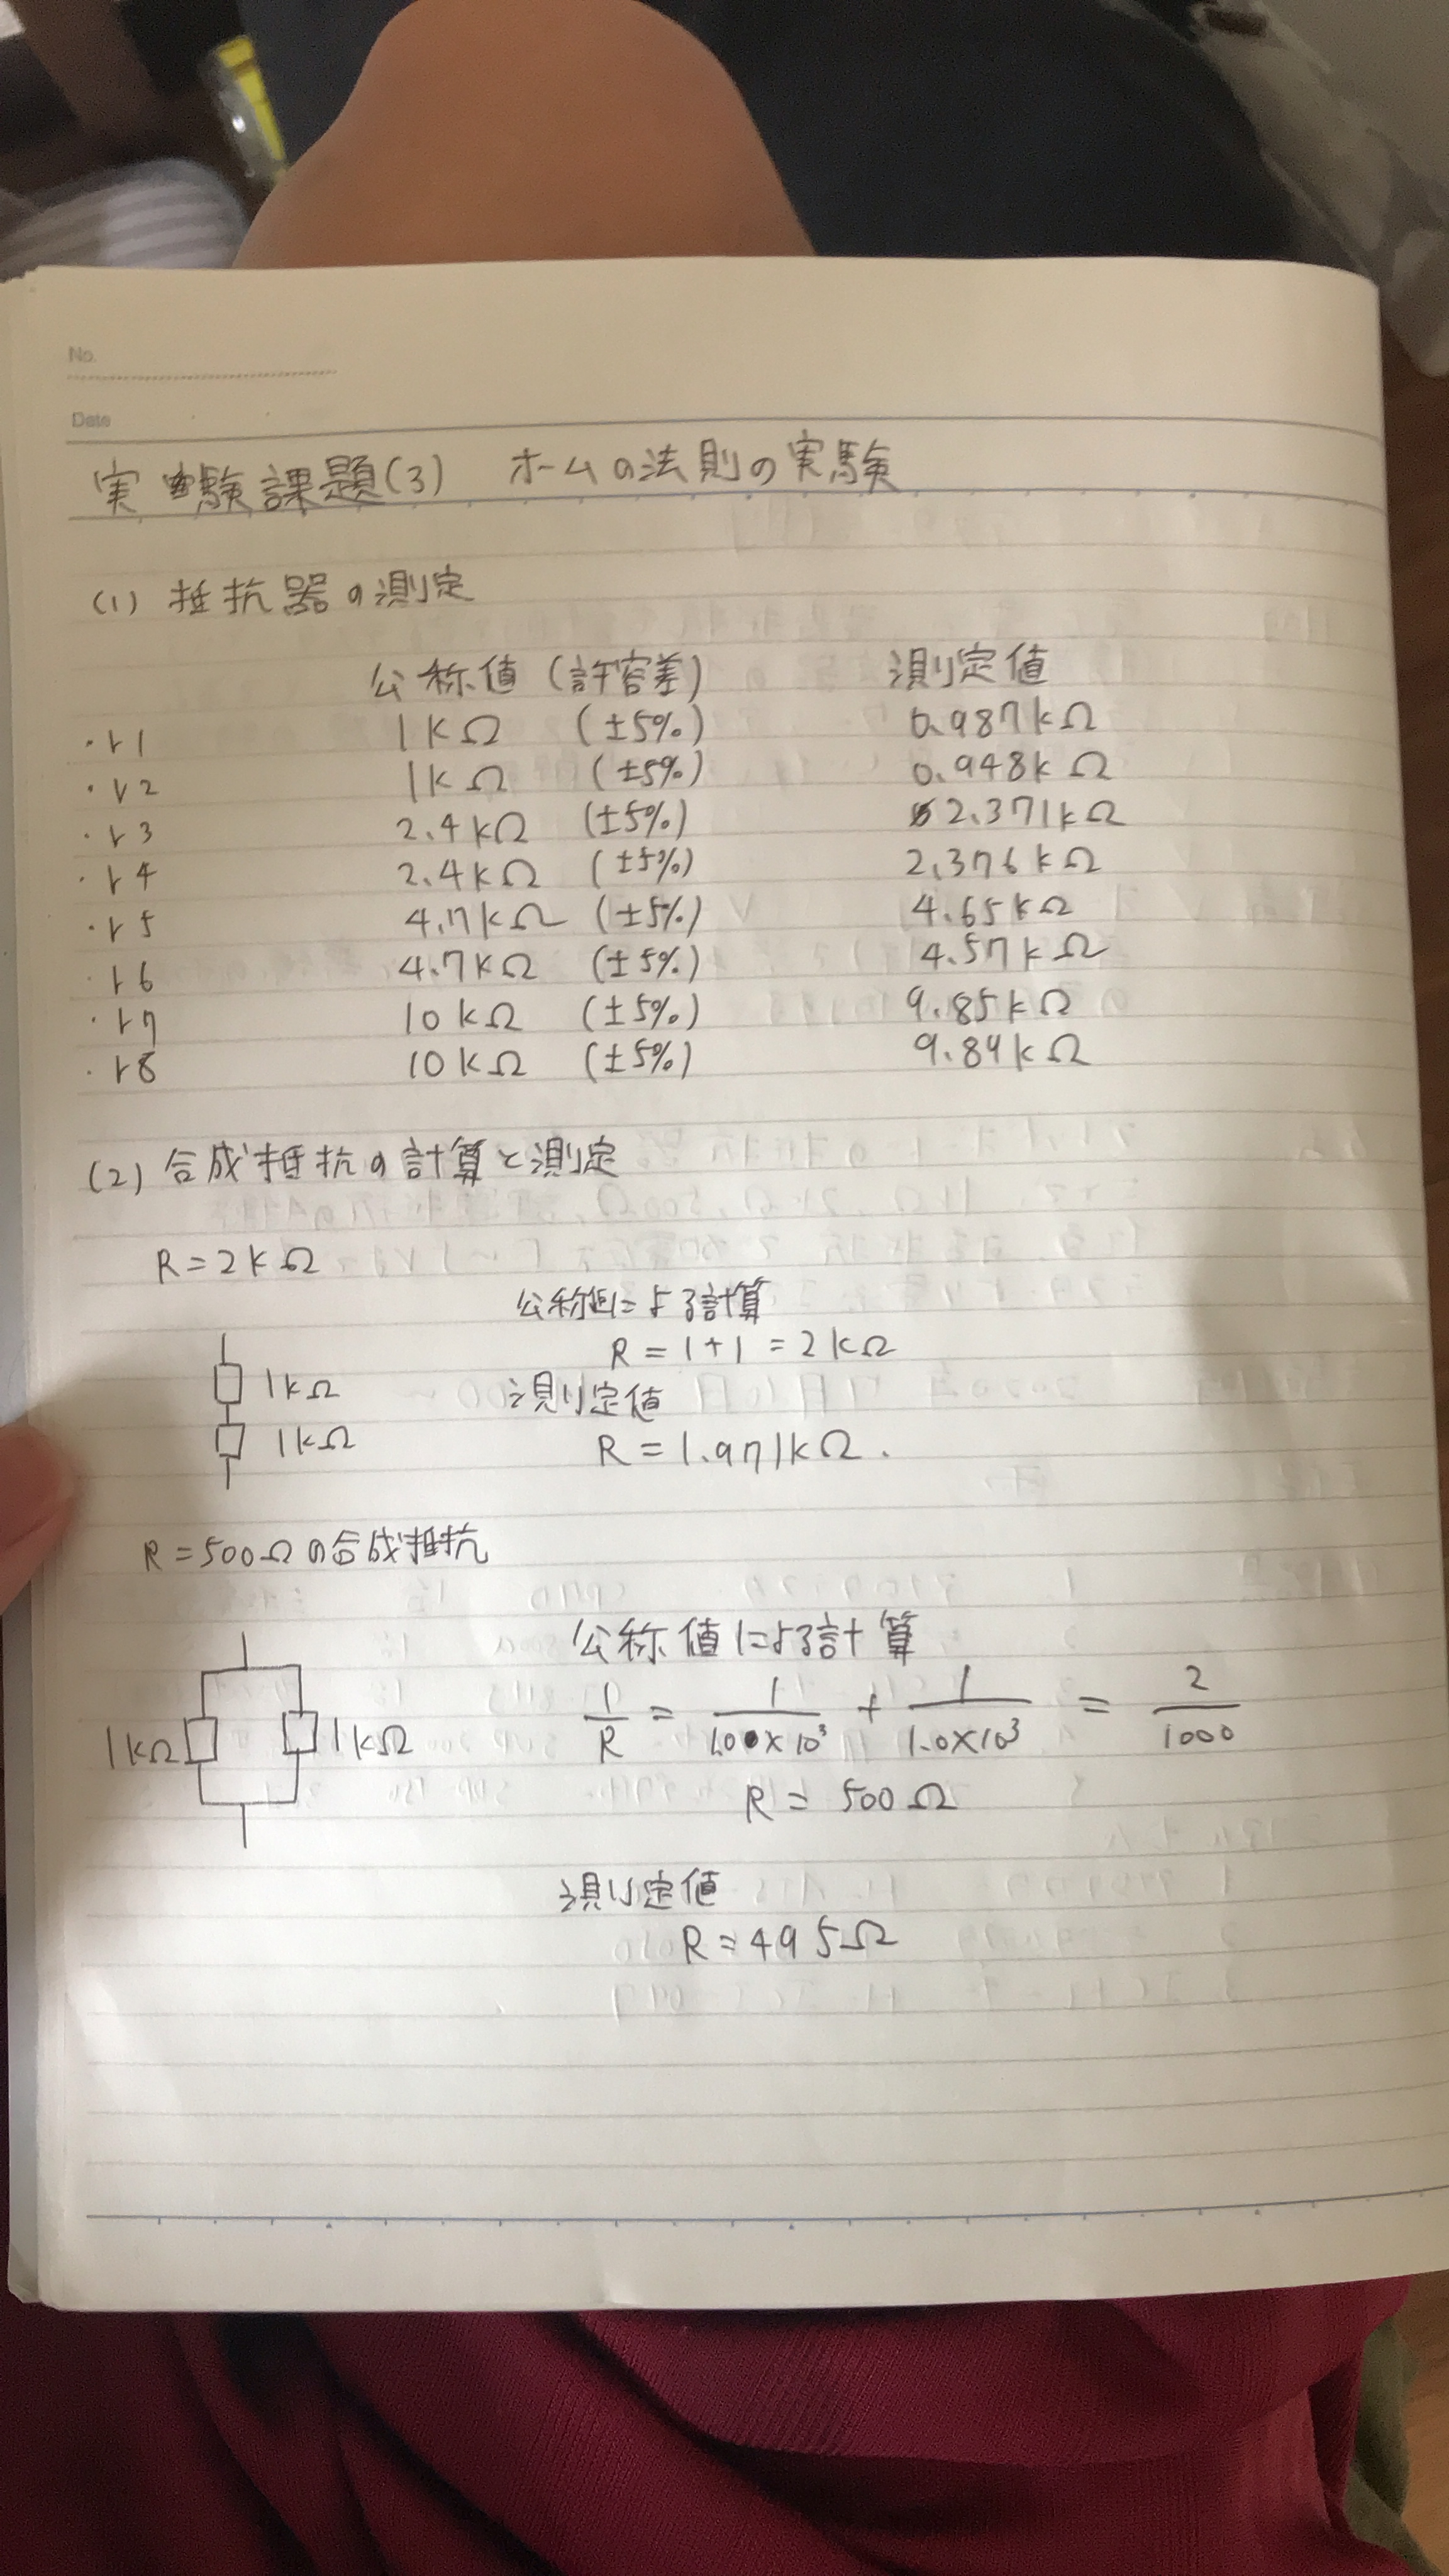 No.
Date
実験課題(3) ホームの法則の実験
(1) 抵抗器の測定
公称値(許容差) 測定値
・r1 1kΩ (±5%) 0.987kΩ
・r2 1kΩ (±5%) 0.948kΩ
・r3 2.4kΩ (±5%) 2.371kΩ
・r4 2.4kΩ (±5%) 2.376kΩ
・r5 4.7kΩ (±5%) 4.65kΩ
・r6 4.7kΩ (±5%) 4.57kΩ
・r7 10kΩ (±5%) 9.85kΩ
・r8 10kΩ (±5%) 9.84kΩ
(2) 合成抵抗の計算と測定
R=2kΩ
公称値による計算
R=1+1=2kΩ
1kΩ
測定値
1kΩ
R=1.971kΩ.
R=500Ωの合成抵抗
公称値による計算
1/R = 1/1.0×10³ + 1/1.0×10³ = 2/1000
1kΩ 1kΩ
R=500Ω
測定値
R=495Ω